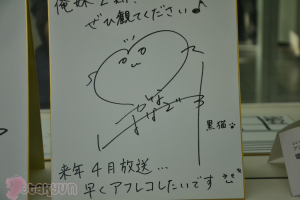 俺妹2期!
ぜひ観てください♪
かな
黒猫
来年4月放送…
早くアフレコしたいです
otakyun